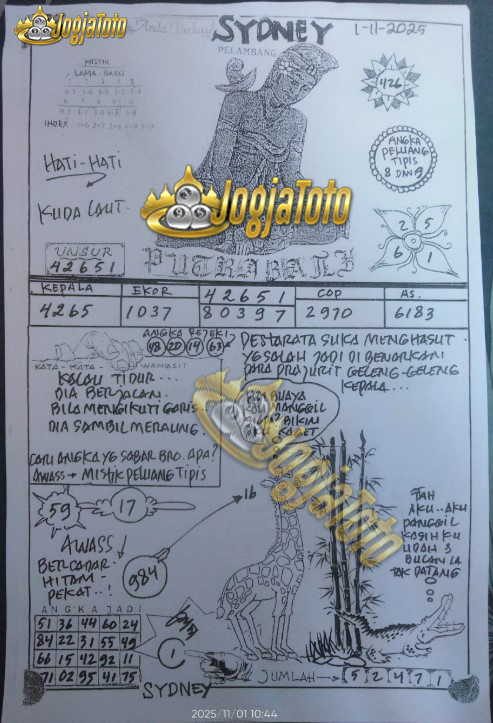 JogjaToto
Anda Berhasil
SYDNEY
1-11-2025
PELAMBANG
MISTIK
LAMA BARU
INDEX
426
ANGKA
PELUANG
TIPIS
8 DAN 9
HATI-HATI
KUDA LAUT.
2 5
6 1
UNSUR
42651
JogjaToto
PUTRA BALI
KEPALA
EKOR
42651
COP
AS.
4265
1037
80397
2970
6183
ANGKA REJEKI
48 20 14 63
KATA - KATA WANGSIT
KALAU TIDUR...
DIA BERJALAN.
BILA MENGIKUTI GARIS..
DIA SAMBIL MERAUNG.
DESTARATA SUKA MENGHASUT.
YG SALAH JADI DI BENARKAN
PARA PRAJURIT GELENG-GELENG
KEPALA...
BUAYA
BIKIN
KAGET
CARI ANGKA YG SABAR BRO. APA?
AWASS → MISTIK PELUANG TIPIS
59
17
16
AWASS!
BERCADAR
HITAM -
PEKAT..!
984
TAH
AKU..AKU
PANGGIL
KASIH KU
UDAH 3
BULAN LA
TAK DATANG
JogjaToto
ANGKA JADI
51 36 44 60 24
84 22 31 55 49
66 15 42 92 11
71 02 95 41 75
1
SYDNEY
JUMLAH → 5 2 4 7 1
2025/11/01 10:44